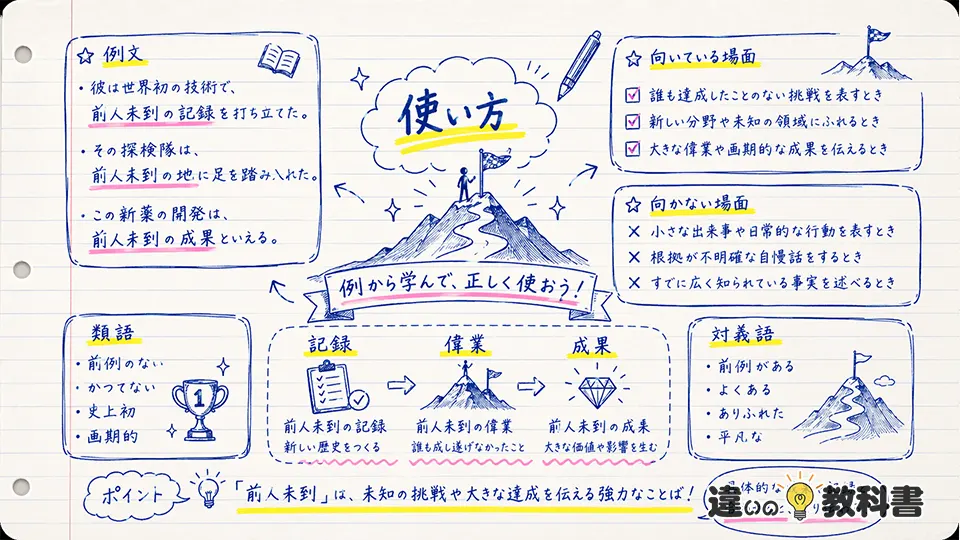 例文
・彼は世界初の技術で、
前人未到の記録を打ち立てた。
・その探検隊は、
前人未到の地に足を踏み入れた。
・この新薬の開発は、
前人未到の成果といえる。
使い方
例から学んで、正しく使おう!
向いている場面
誰も達成したことのない挑戦を表すとき
新しい分野や未知の領域にふれるとき
大きな偉業や画期的な成果を伝えるとき
向かない場面
× 小さな出来事や日常的な行動を表すとき
× 根拠が不明確な自慢話をするとき
× すでに広く知られている事実を述べるとき
類語
・前例のない
・かつてない
・史上初
・画期的
1
記録
前人未到の記録
新しい歴史をつくる
偉業
前人未到の偉業
誰も成し遂げなかったこと
成果
前人未到の成果
大きな価値や影響を生む
対義語
・前例がある
・よくある
・ありふれた
・平凡な
ポイント
「前人未到」は、未知の挑戦や大きな達成を伝える強力なことば!
体的な
違いの教科書